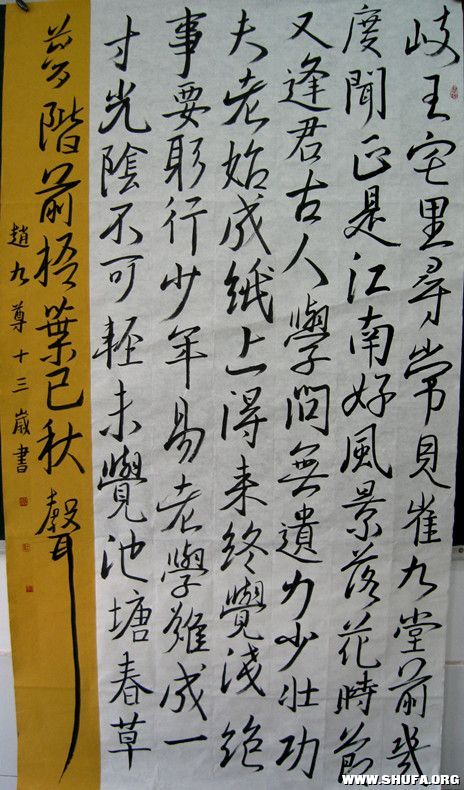 岐王宅里尋常見崔九堂前幾
度聞正是江南好風景落花時節
又逢君古人學問無遺力少壯功
夫老始成紙上得来終覺淺絶
事要躬行少年易老學難成一
寸光陰不可輕未覺池塘春草
夢階前梧葉已秋聲
趙九尊十三歲書
WWW.SHUFA.ORG